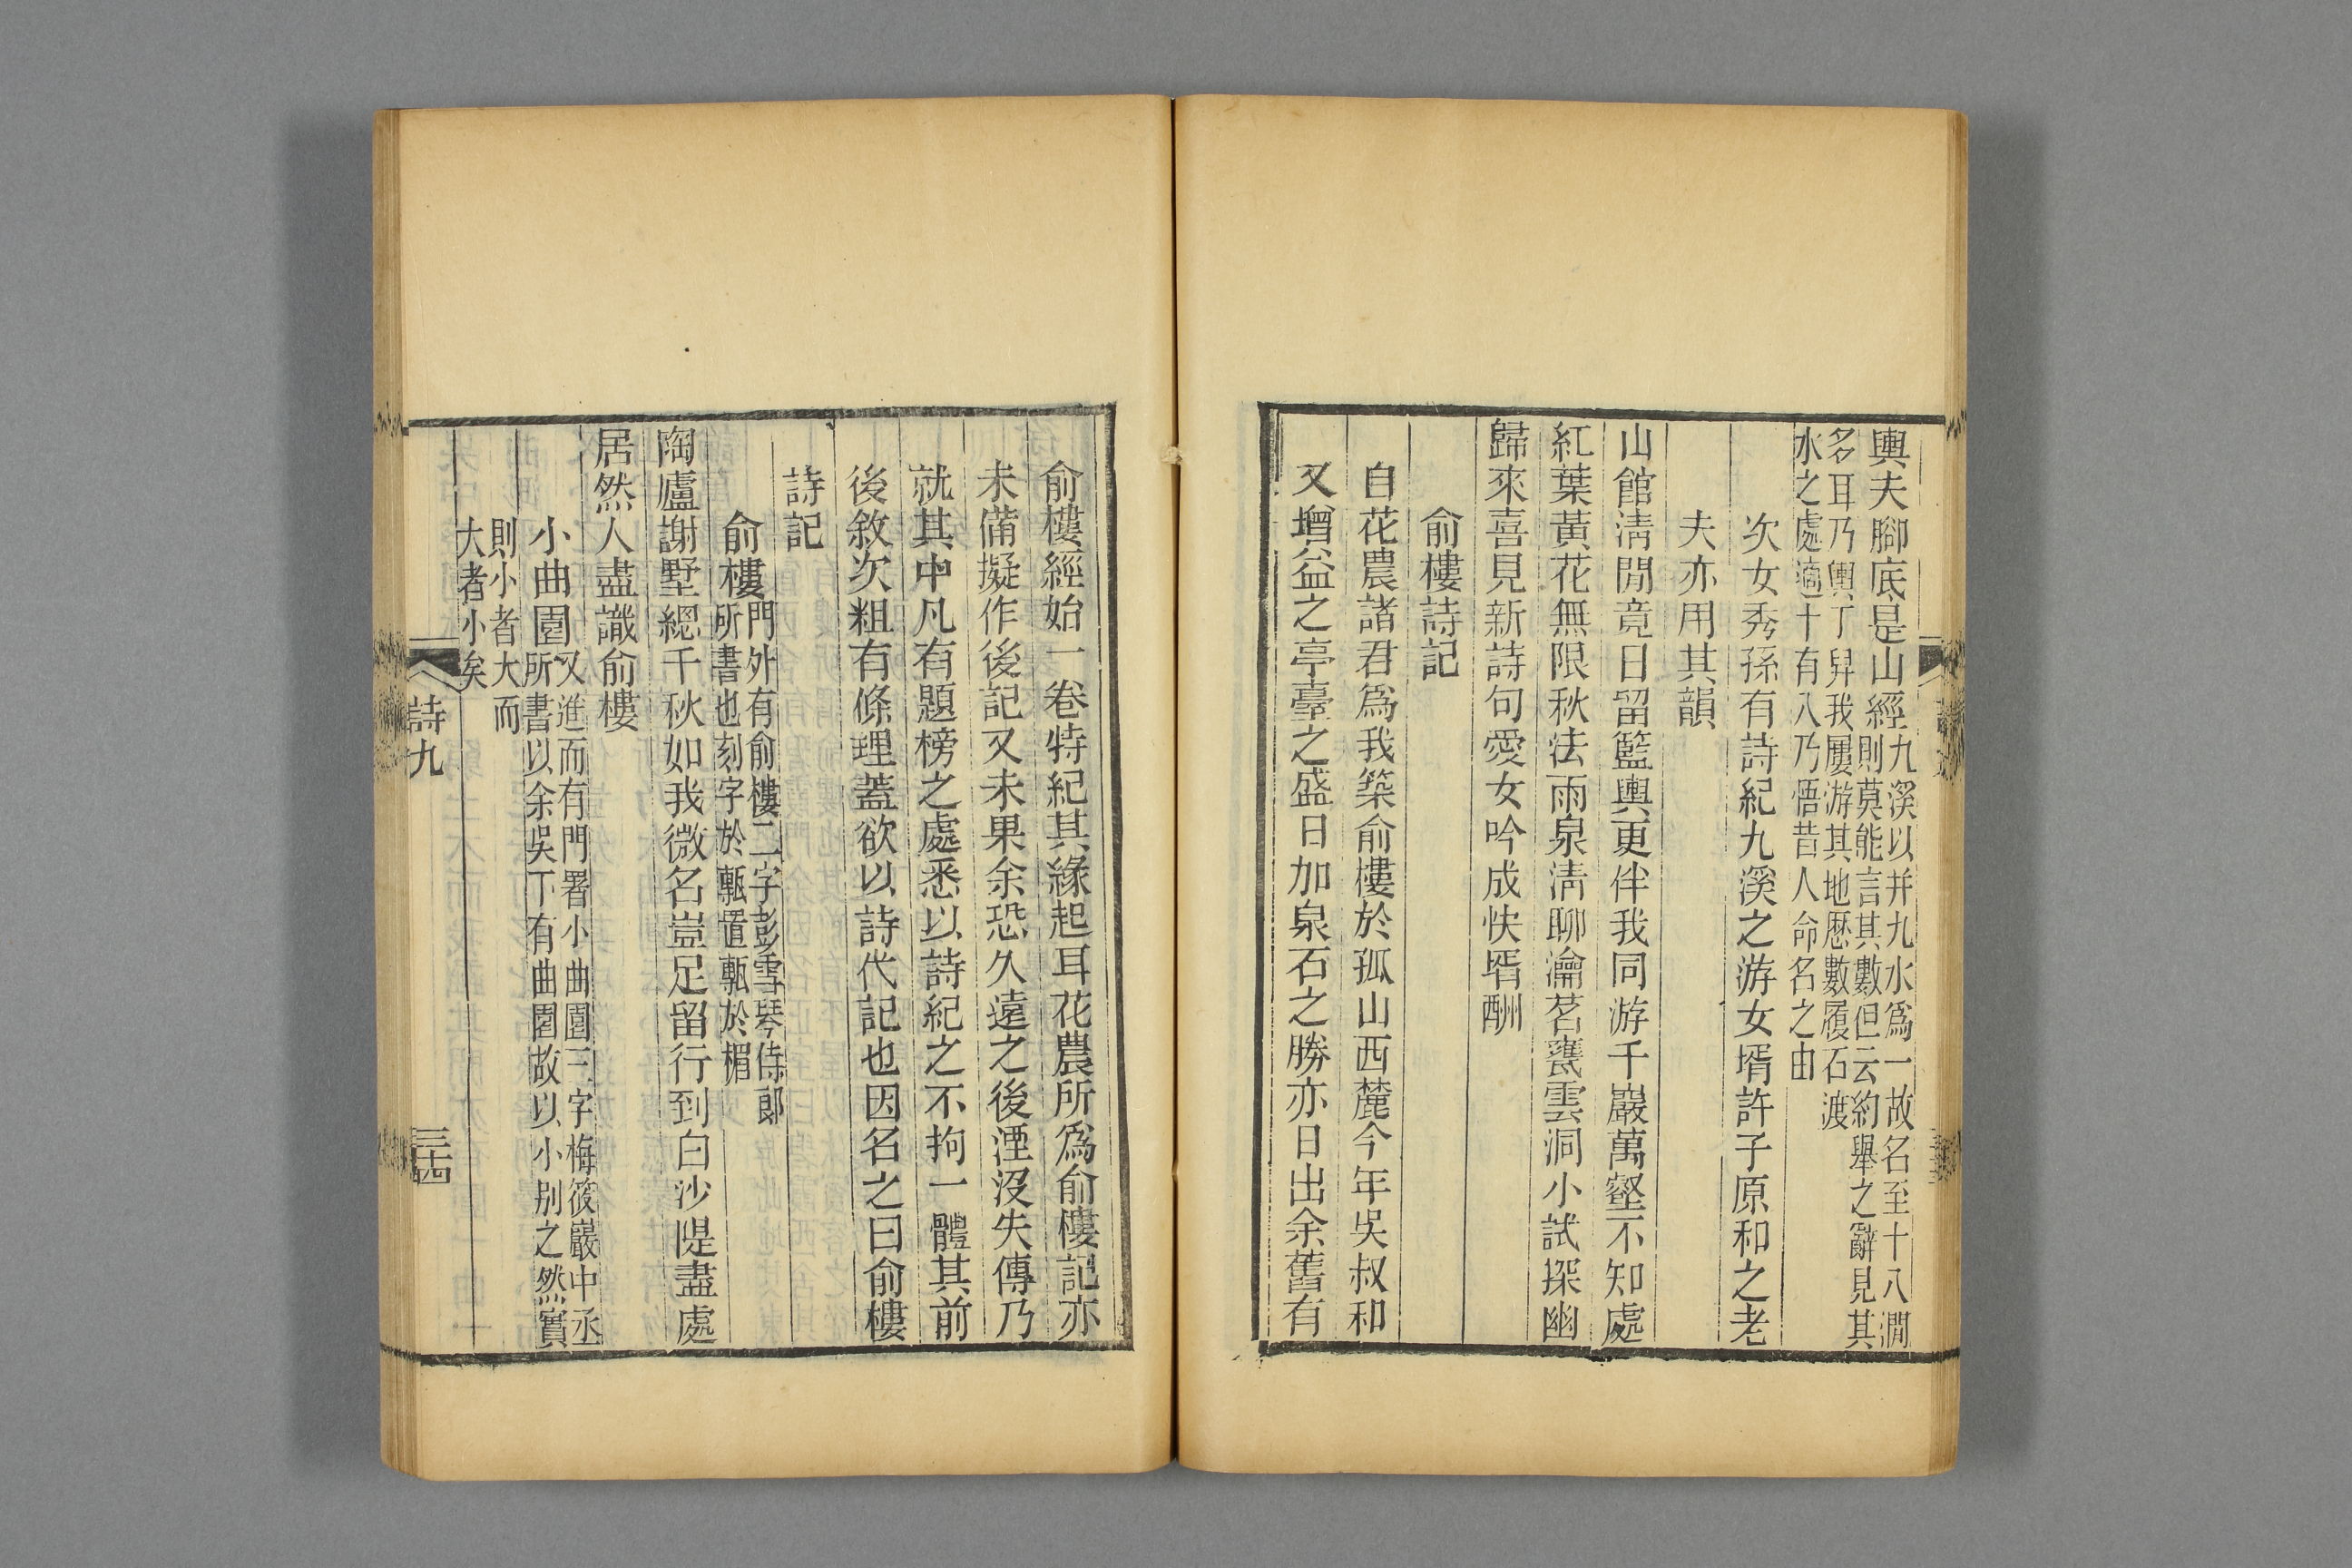 輿夫腳底是山經
九溪以并九水爲一故名至十八澗
則莫能言其數但云約舉之辭見其
多耳乃輿丁舁我屢游其地歷數履石渡
水之處適十有八乃悟昔人命名之由
次女秀孫有詩紀九溪之游女壻許子原和之老
夫亦用其韻
山館清閒竟日留籃輿更伴我同游千巖萬壑不知處
紅葉黃花無限秋法雨泉清聊瀹茗甕雲洞小試探幽
歸來喜見新詩句愛女吟成快壻酬
俞樓詩記
自花農諸君爲我築俞樓於孤山西麓今年吳叔和
又增益之亭臺之盛日加泉石之勝亦日出余舊有
俞樓經始一卷特紀其緣起耳花農所爲俞樓記亦
未備擬作後記又未果余恐久遠之後湮沒失傳乃
就其中凡有題榜之處悉以詩紀之不拘一體其前
後敘次粗有條理蓋欲以詩代記也因名之曰俞樓
詩記
俞樓
門外有俞樓二字彭雪琴侍郎
所書也刻字於甎置甎於楣
陶廬謝墅總千秋如我微名豈足留行到白沙隄盡處
居然人盡識俞樓
小曲園
又進而有門署小曲園三字梅筱巖中丞
所書以余吳下有曲園故以小別之然實
則小者大而
大者小矣
詩九
三十四